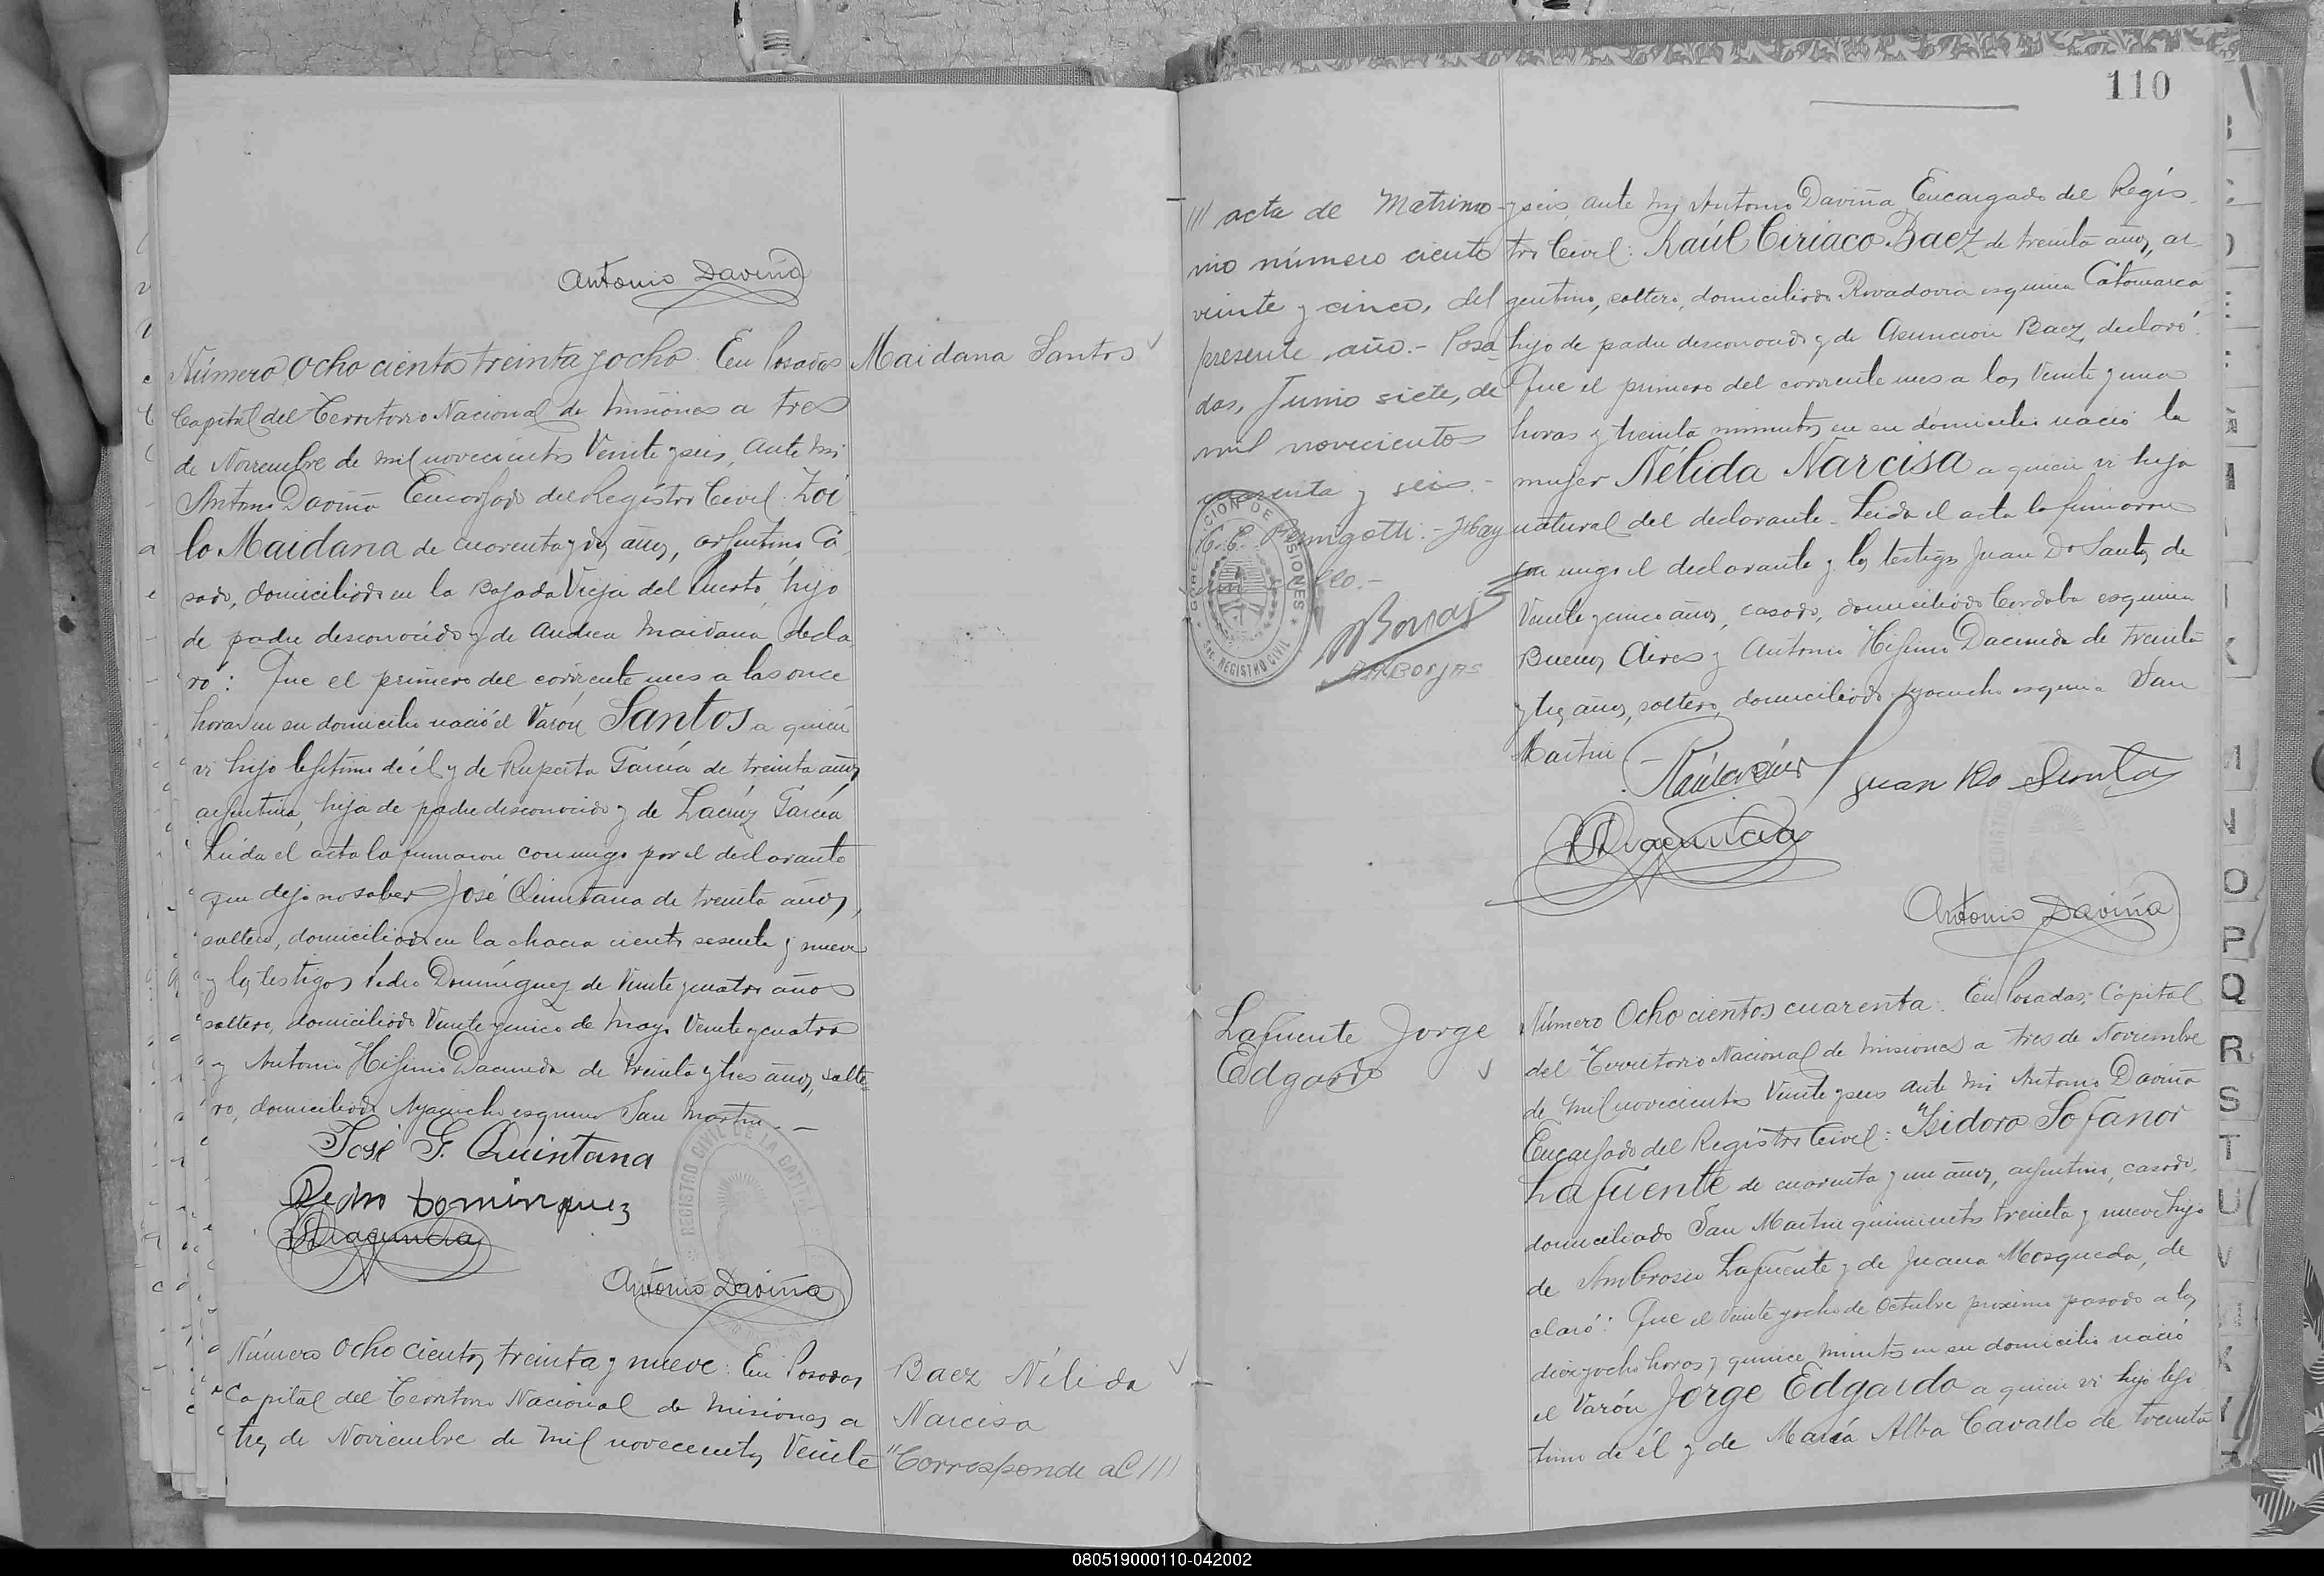 Antonio Daviña
Número Ocho cientos treinta y ocho. En Posadas
Capital del Territorio Nacional de Misiones a tres
de Noviembre de mil novecientos Veinte y seis, ante mi
Antonio Daviña Encargado del Registro Civil: Zoi
lo Maidana de cuarenta y dos años, argentino, ca
sado, domiciliado en la Bajada Vieja del Puerto, hijo
de padre desconocido y de Andrea Maidana, decla
ró: Que el primero del corriente mes a las once
horas en su domicilio nació el Varón Santos a quien
vi hijo lejitimo de él y de Ruperta García de treinta años
argentina, hija de padre desconocido y de García
Leida el acta la firmaron conmigo por el declarante
que dijo no saber José Quintana de treinta años,
soltero, domiciliado en la chacra ciento sesenta y nueve
y los testigos Pedro Domínguez de Veinte y cuatro años
soltero, domiciliado Veinte y cinco de Mayo Veinte y cuatro
y Antonio Hijinio Dacunda de treinta y tres años, solte
ro, domiciliado Ayacucho esquina San Martin. —
José G. Quintana
Pedro Dominguez
Antonio Daviña
REGISTRO CIVIL DE LA CAPITAL
Número Ocho cientos treinta y nueve: En Posadas
Capital del Territorio Nacional de Misiones a
tres de Noviembre de mil novecientos Veinte
Maidana Santos
Baez Nélida
Narcisa
"Corresponde al ///
110
/// acta de Matrimo-
nio número ciento
veinte y cinco, del
presente año.- Posa
das, Junio siete, de
mil novecientos
cuarenta y seis.-
BORJAS
DIRECCION DE MISIONES
GRL. REGISTRO CIVIL
y seis, ante mi Antonio Daviña Encargado del Regis
tro Civil: Raúl Ciriaco Baez de treinta años, ar
gentino, soltero, domiciliado Rivadavia esquina Catamarca
hijo de padre desconocido y de Asuncion Baez, declaró:
Que el primero del corriente mes a las Veinte y una
horas y treinta minutos en su domicilio nació la
mujer Nélida Narcisa a quien vi hija
natural del declarante. Leida el acta la firmaron
con migo el declarante y los testigos Juan Do Santos de
Veinte y cinco años, casado, domiciliado Cordoba esquina
Buenos Aires y Antonio Hijinio Dacunda de treinta
y tres años, soltero, domiciliado Ayacucho esquina San
Martin —
Juan Do Santos
Antonio Daviña
Lafuente Jorge
Edgardo
Número Ocho cientos cuarenta: En Posadas, Capital
del Territorio Nacional de Misiones a tres de Noviembre
de mil novecientos Veinte y seis ante mi Antonio Daviña
Encargado del Registro Civil: Isidoro Sofanor
Lafuente de cuarenta y un años, argentino, casado,
domiciliado San Martin quinientos treinta y nueve hijo
de Ambrosio Lafuente y de Juana Mosqueda, de
claró: Que el Veinte y ocho de Octubre proximo pasado a las
diez y ocho horas y quince minutos en su domicilio nació
el Varón Jorge Edgardo a quien vi hijo leji
timo de él y de María Alba Cavallo de treinta
O
P
Q
R
S
T
U
V
080519000110-042002